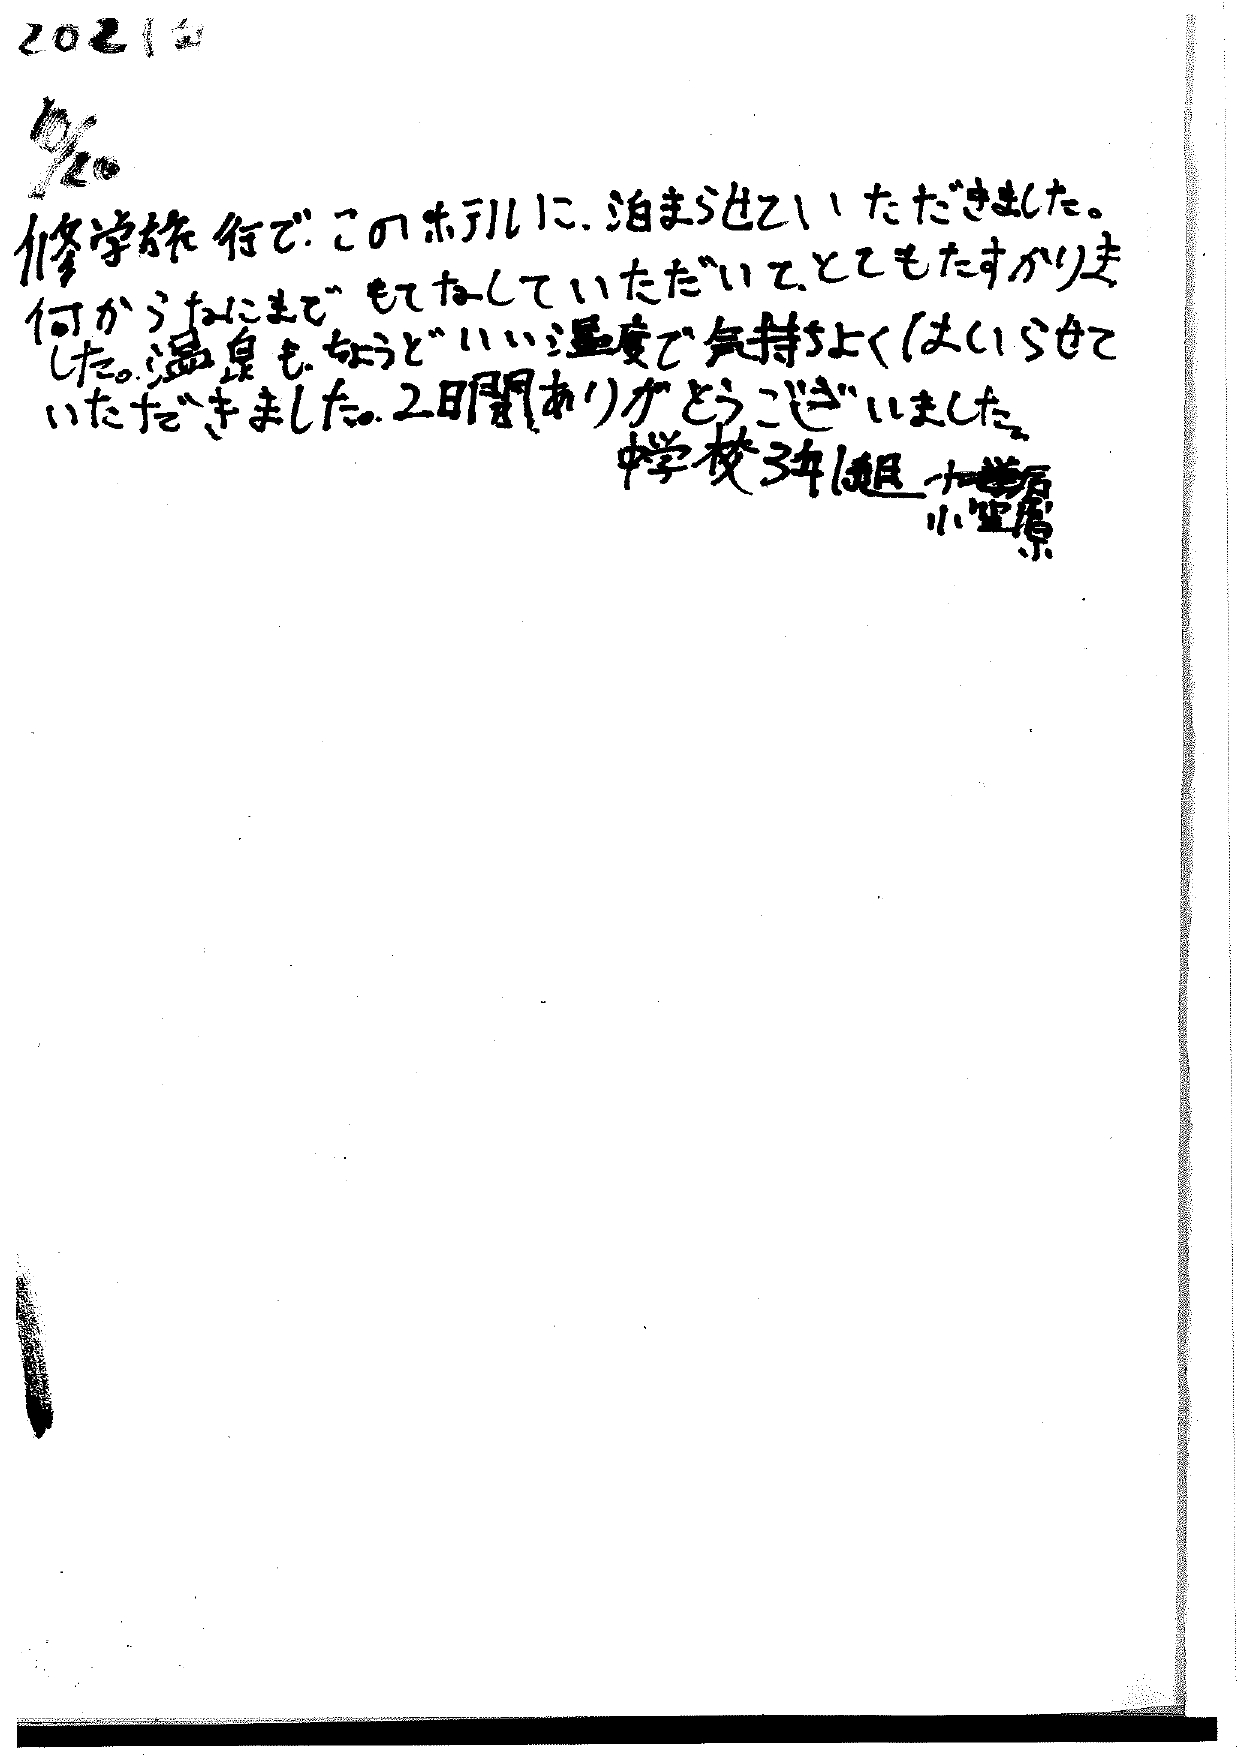 2021
修学旅行で、このホテルに、泊まらせていただきました。
何からなにまでもてなしていただいて、とてもたすかりま
した。温泉も、ちょうどいい温度で気持ちよくはいらせて
いただきました。2日間ありがとうございました。
中学校3年1組
小笠原